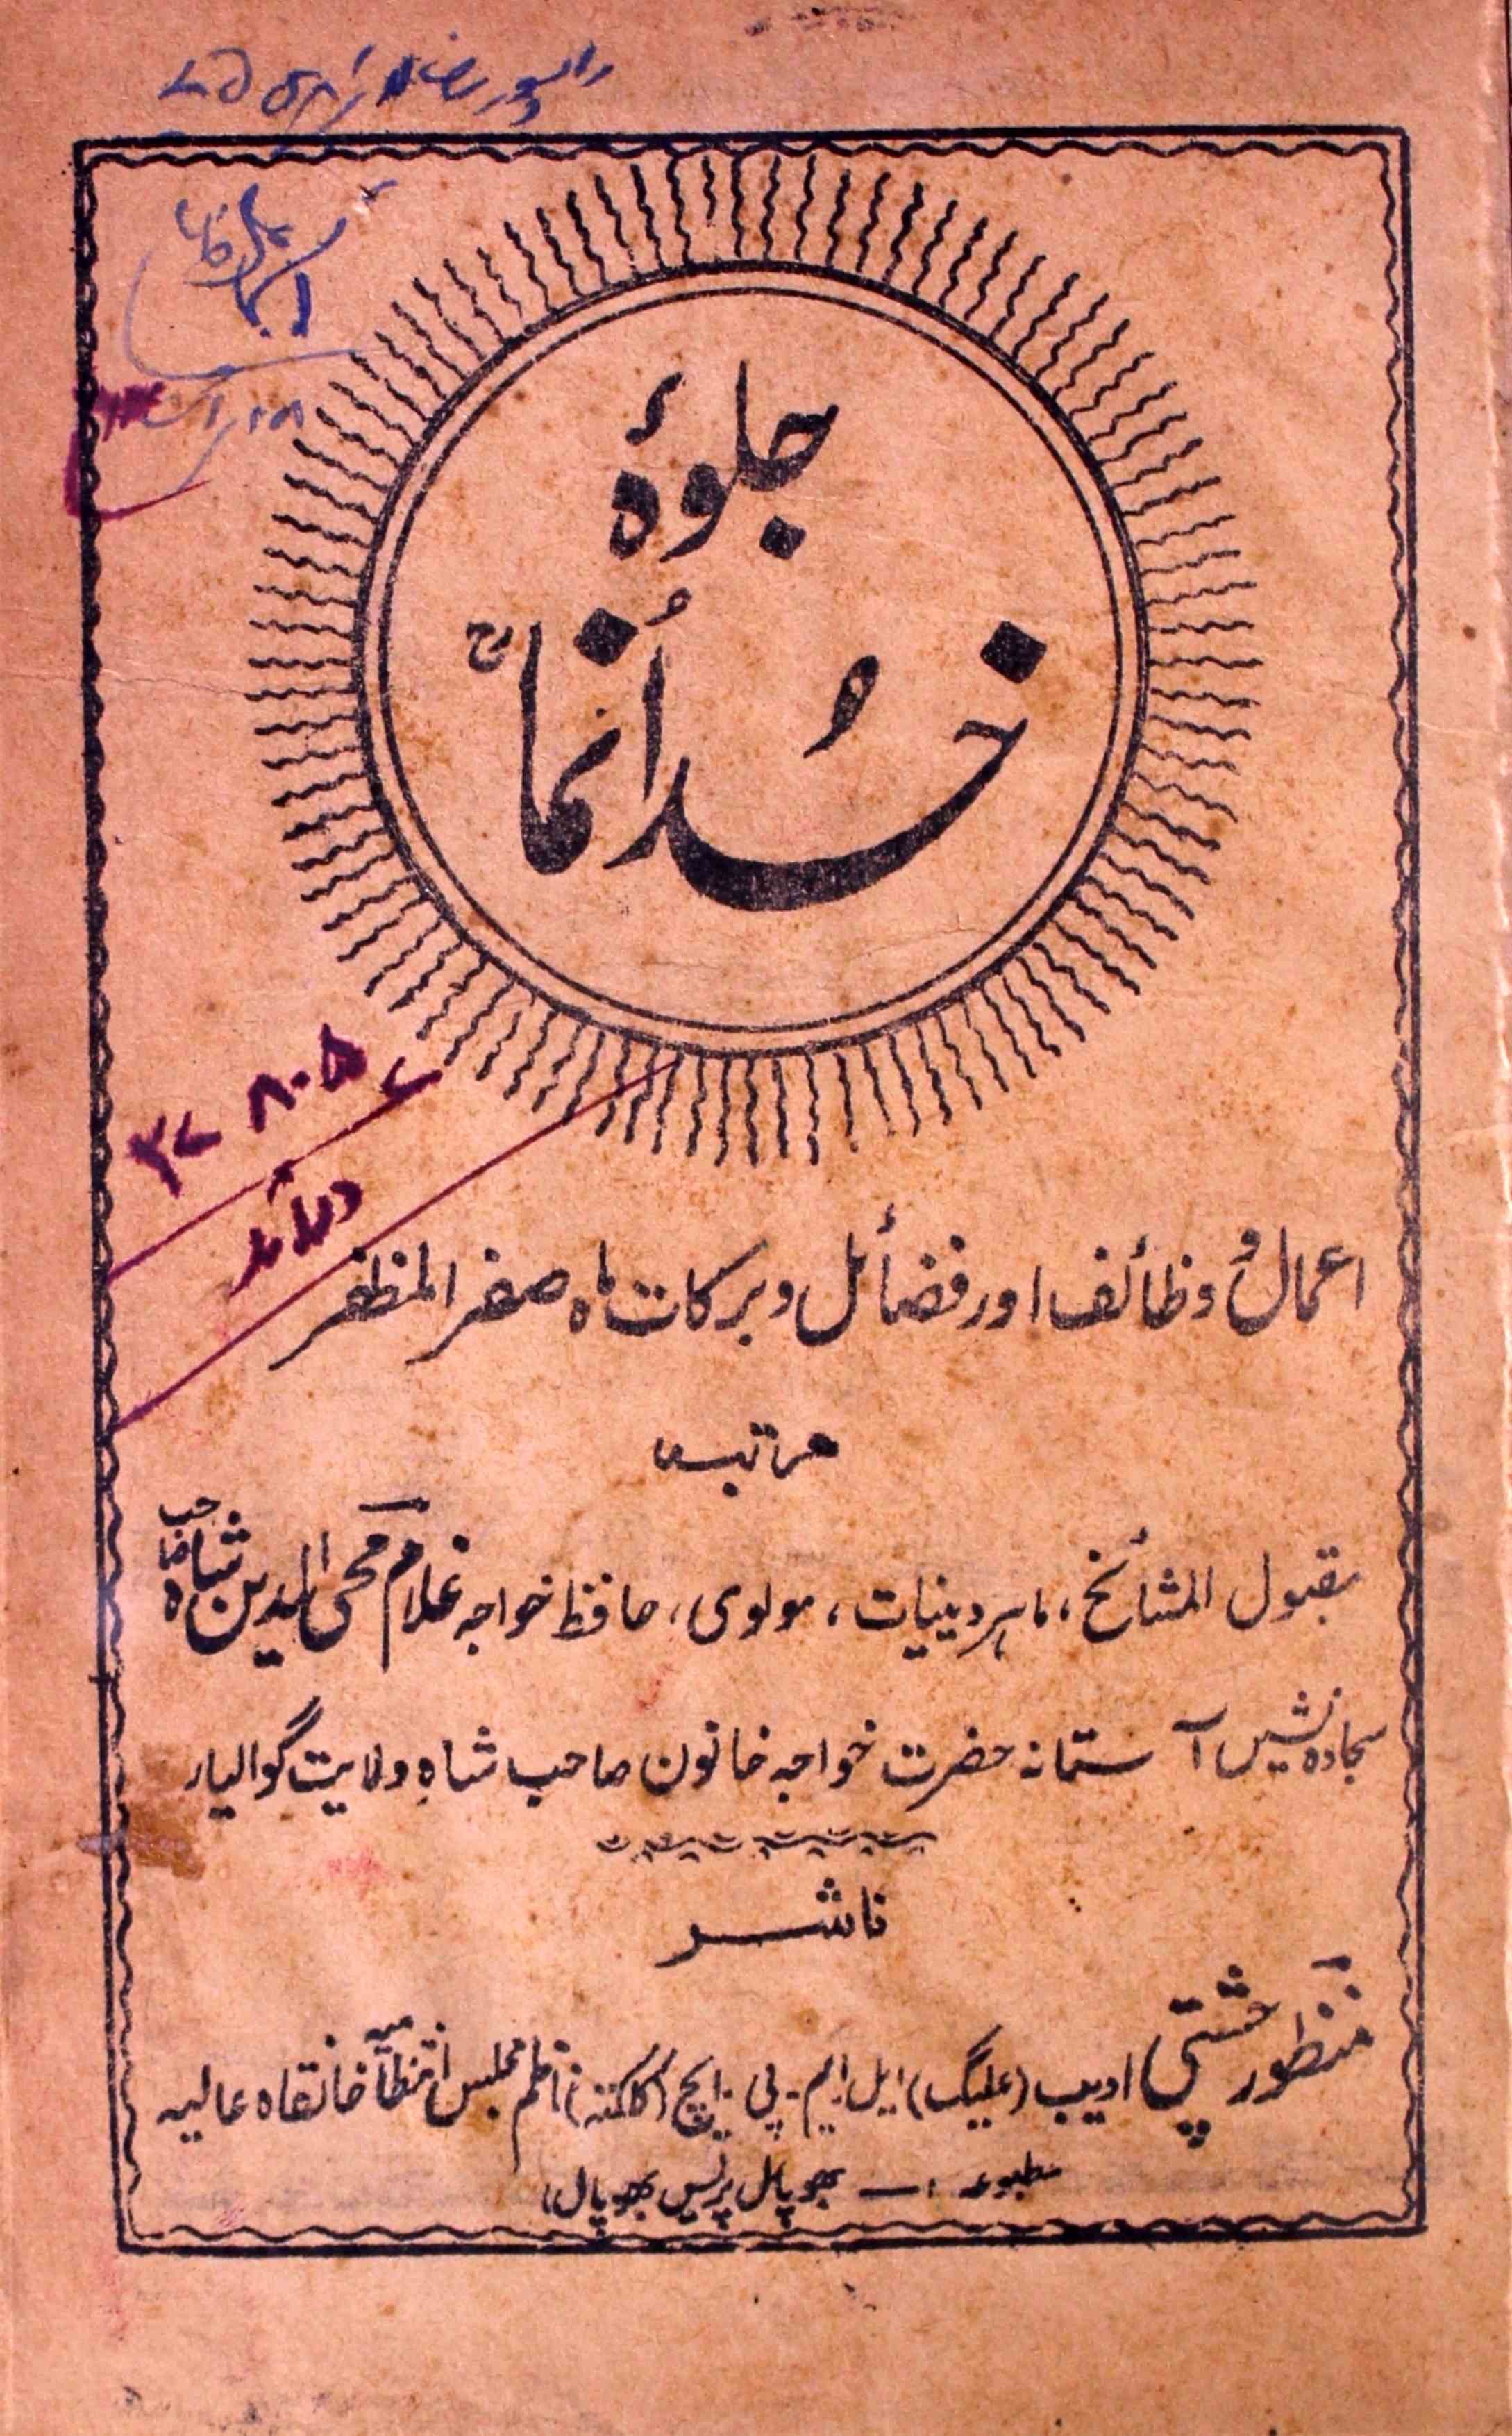 جلوۂ
خُدانما رح
۸۰۵
اعمال و وظائف اور فضائل و برکات ماہ صفر المظفر
مرتبہ
مقبول المشائخ، ماہر دینیات، مولوی، حافظ خواجہ غلام محی الدین شاہ صاحب
سجادہ نشیں آستانہ حضرت خواجہ خانون صاحب شاہِ ولایت گوالیار
ناشر
منظور چشتی ادیب (علیگ) ایل۔ایم۔پی۔ایچ (کلکتہ) ناظم مجلس انتظامیہ خانقاہ عالیہ
مطبوعہ :— بھوپال پریس بھوپال،